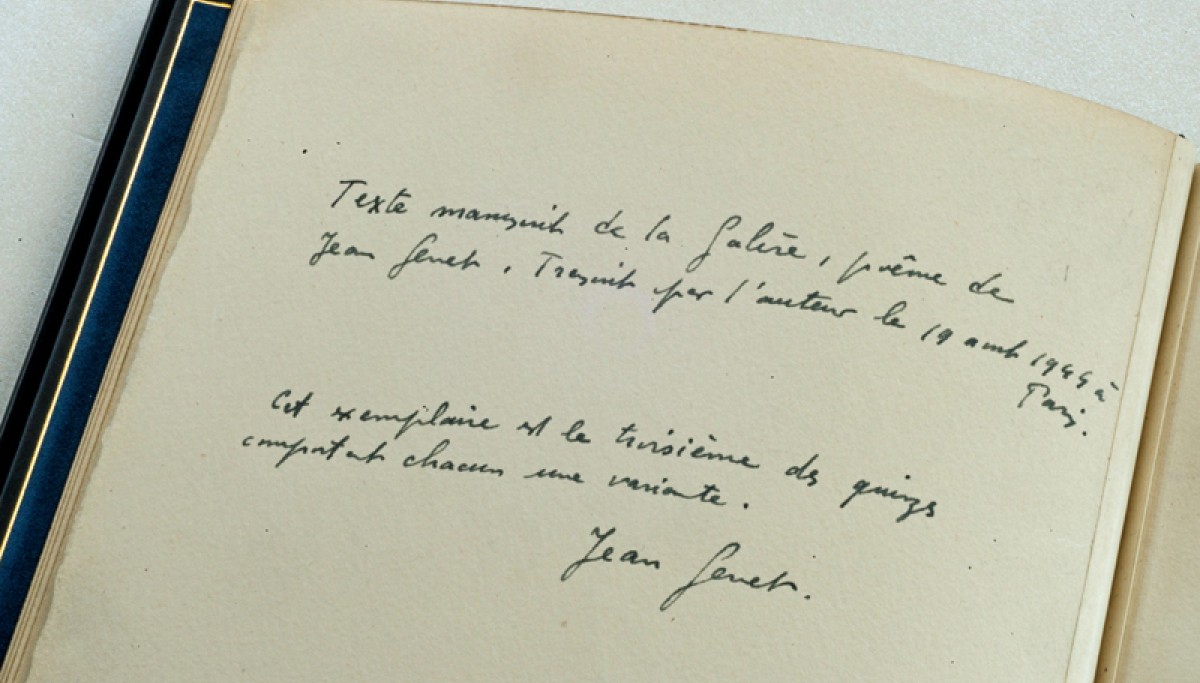 Texte manuscrit de la Galère, poème de
Jean Genet. Transcrit par l'auteur le 19 août 1944 à
Paris.
Cet exemplaire est le troisième des quinze
comportant chacun une variante.
Jean Genet.